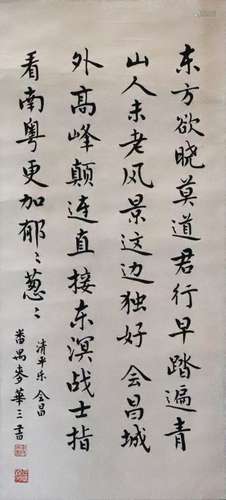 东方欲晓莫道君行早踏遍青
山人未老风景这边独好会昌城
外高峰颠连直接东溟战士指
看南粤更加郁〻葱〻
清平乐会昌
番禺麦華三書